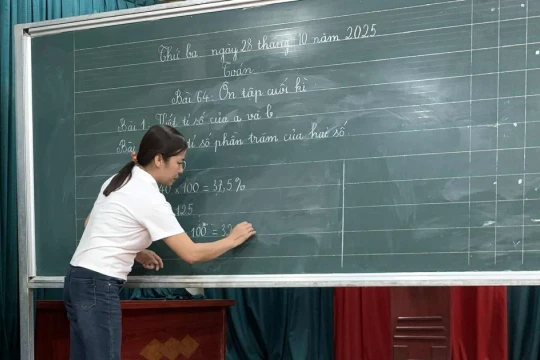 Thứ ba, ngày 28 tháng 10 năm 2025
Toán
Bài 64. Ôn tập cuối kì
Bài 1. Viết tỉ số của a và b
Bài tỉ số phần trăm của hai số
40 x 100 = 37,5%
125
100 = 32